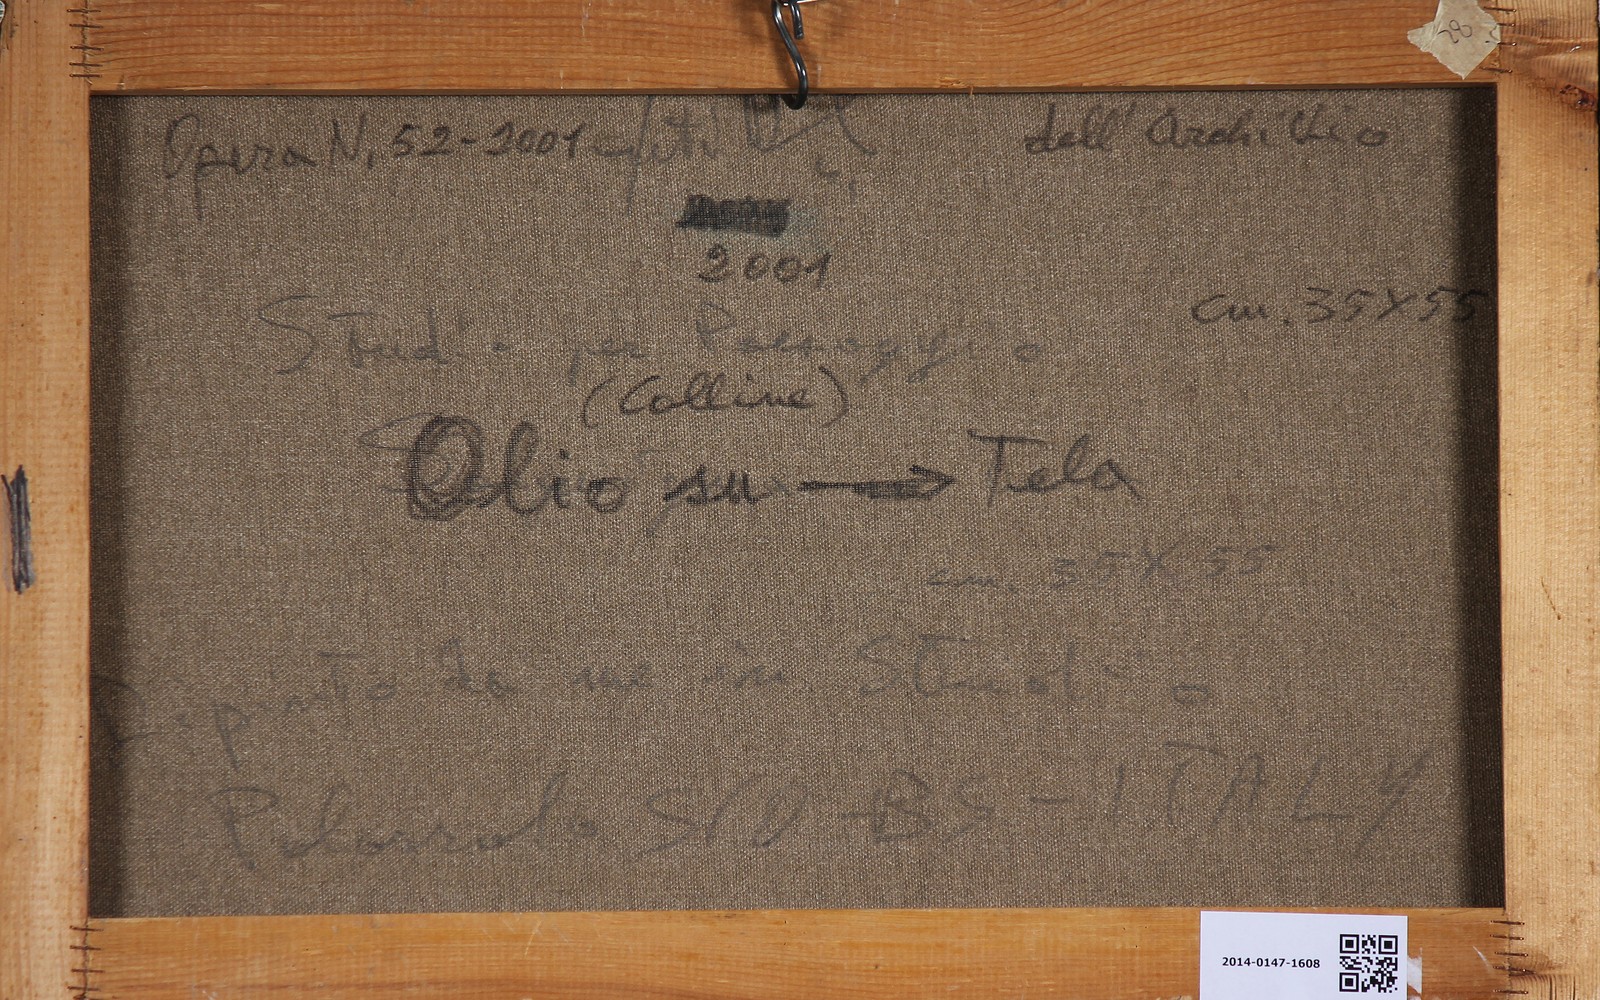 Opera N. 52-2001 dell'Archivio
2001
cm. 35X55
Studio per Paesaggio
(Colline)
Olio su → Tela
cm. 35X55
Dipinto da me in Studio
BS - ITALY
2014-0147-1608